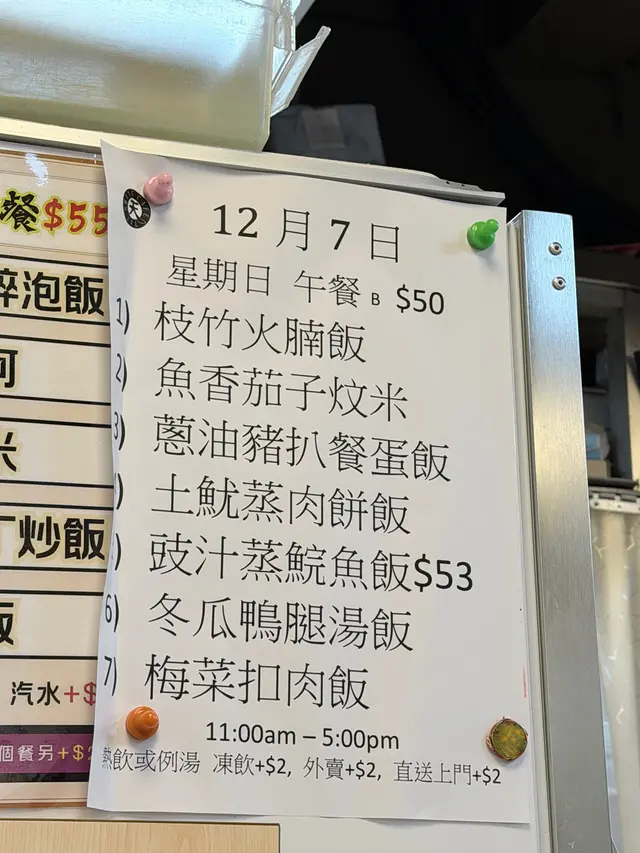 餐$55
泡飯
河
米
丁炒飯
飯
汽水+$
個餐另+$2
天
12月7日
星期日 午餐 B $50
1) 枝竹火腩飯
2) 魚香茄子炆米
3) 蔥油豬扒餐蛋飯
) 土魷蒸肉餅飯
) 豉汁蒸鯇魚飯$53
6) 冬瓜鴨腿湯飯
7) 梅菜扣肉飯
11:00am – 5:00pm
熱飲或例湯 凍飲+$2, 外賣+$2, 直送上門+$2